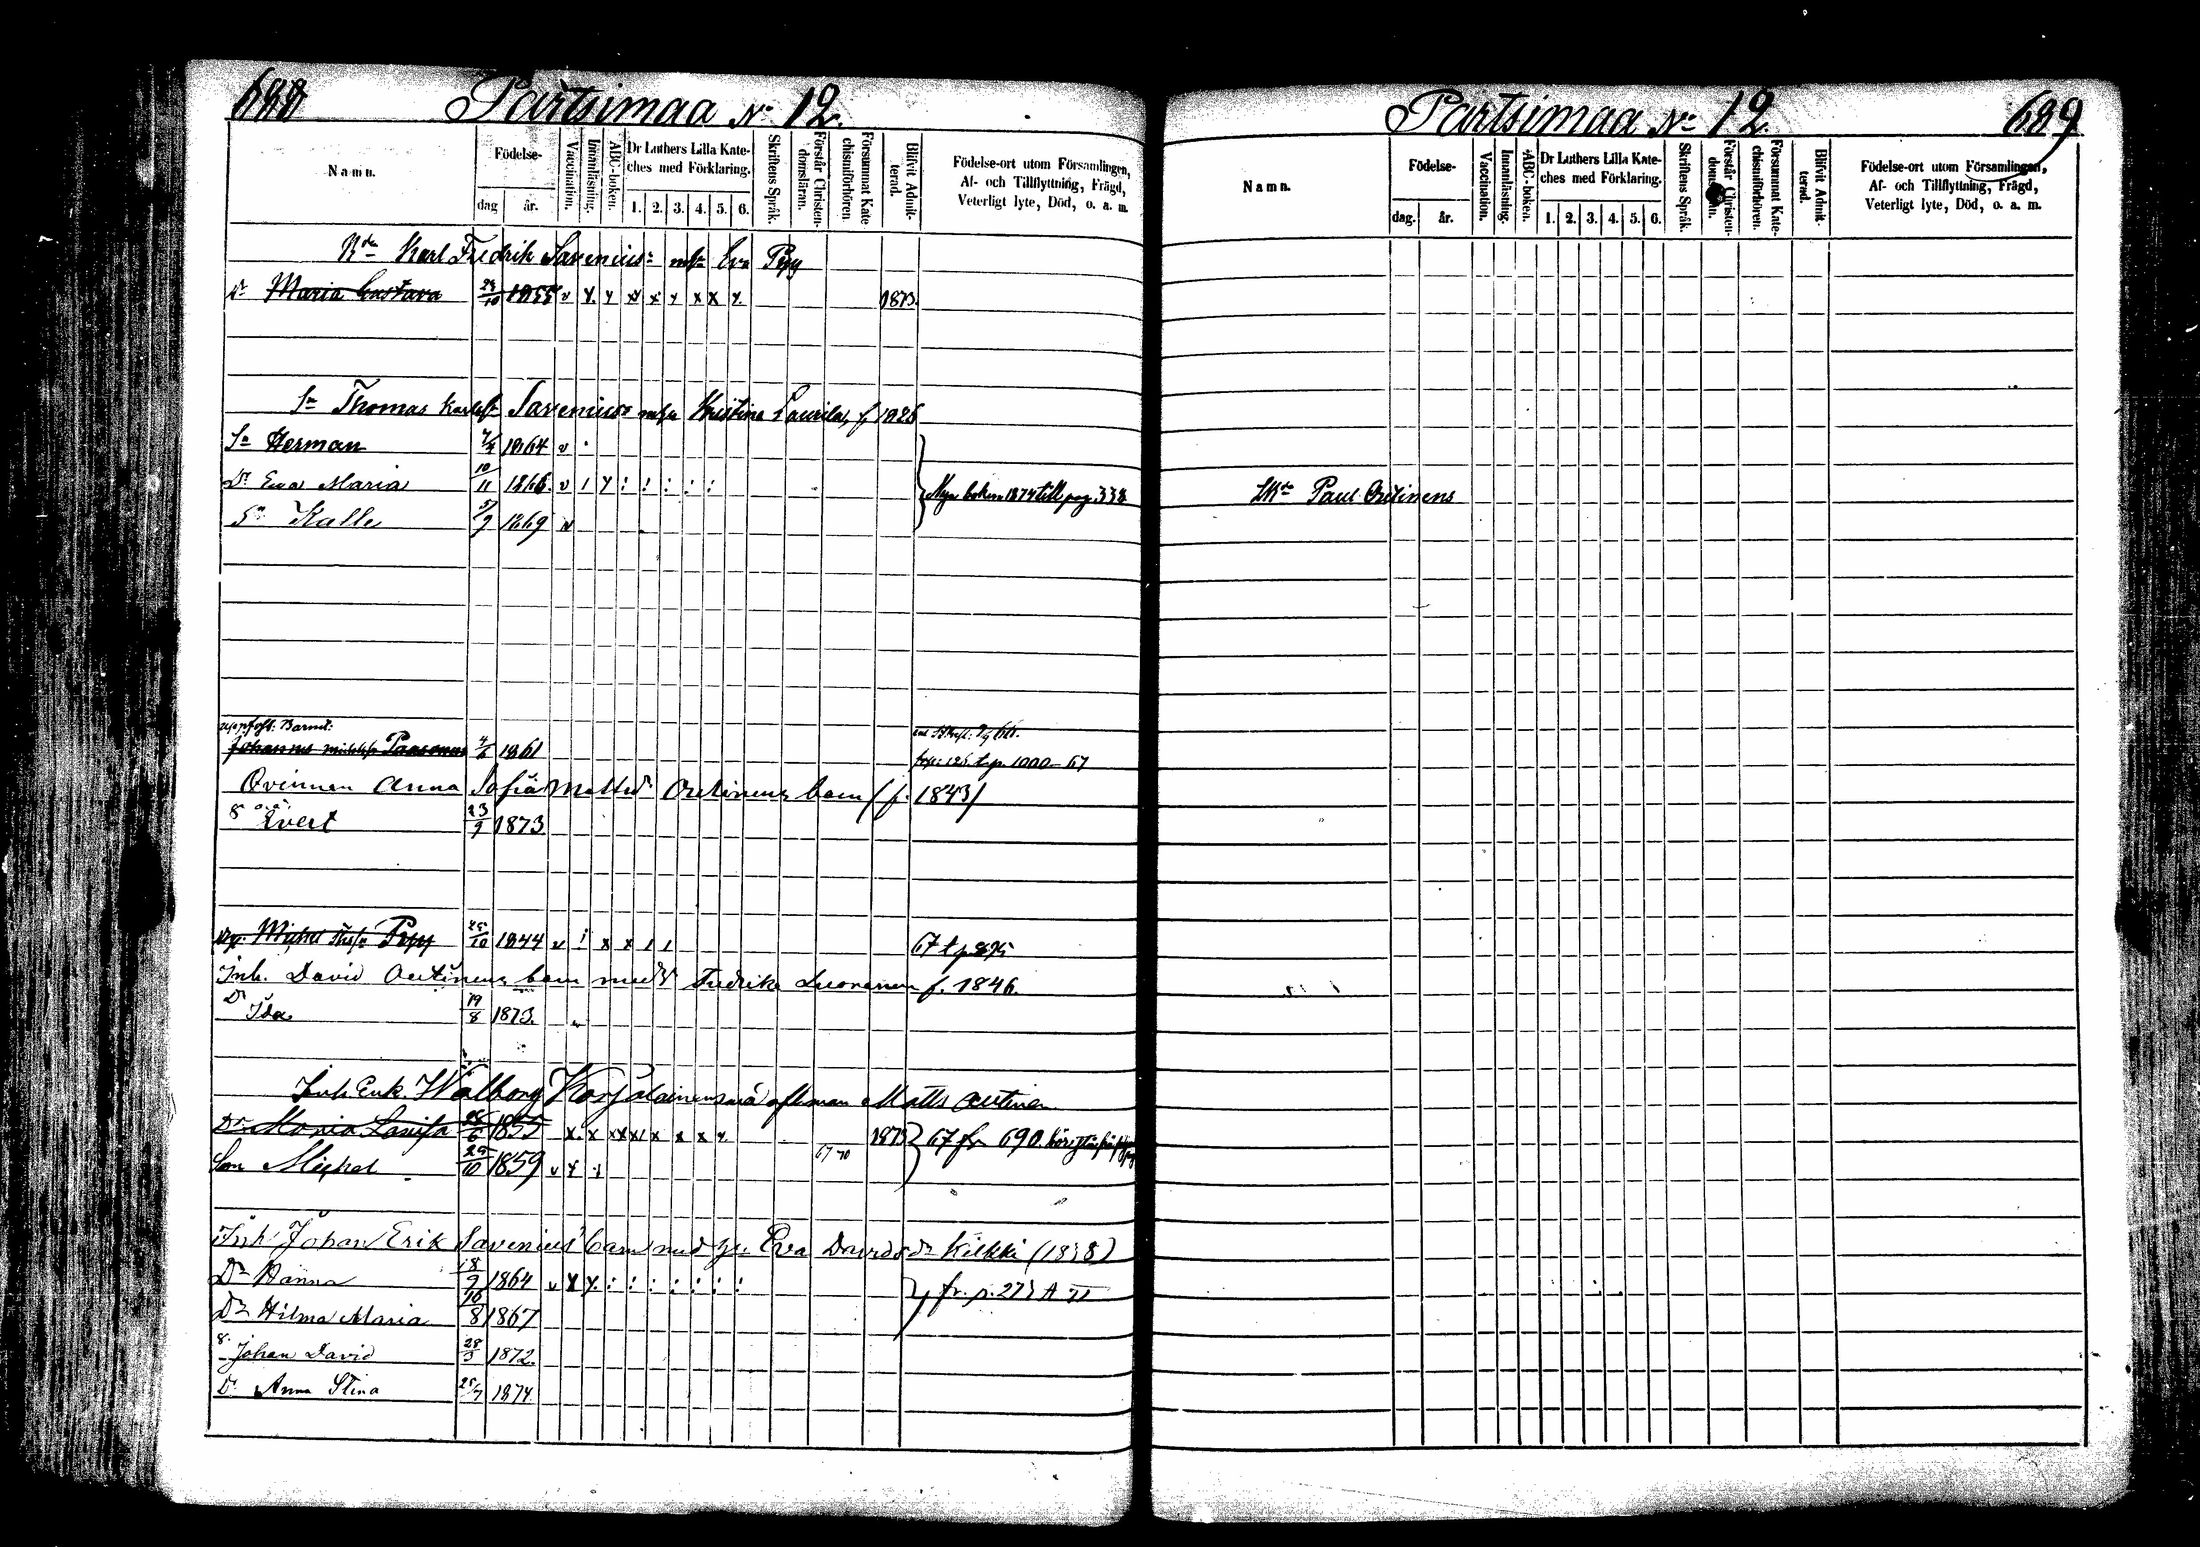 688 Partsimaa No 12.
Namn.
Födelse-
dag
år.
Vaccination.
Innanläsning.
ABC-boken.
Dr Luthers Lilla Kate-
ches med Förklaring.
1. 2. 3. 4. 5. 6.
Skriftens Språk.
Förstår Christen-
domsläran.
Försummat Kate
chismiförhören.
Blifvit Admit-
terad.
Födelse-ort utom Församlingen,
Af- och Tillflyttning, Frägd,
Veterligt lyte, Död, o. a. m.
Karl Fredrik Savenius Eva Pepy
Dr Maria Gustava 1855 v x x x x x x x x 1873.
Sn Thomas Savenius Kristina Laurila, f. 1826
Sn Herman 1864 v
Dr Eva Maria 10/11 1866. v
Nya boken 1874 till pag. 338
Sn Kalle 5/9 1869 v
Barnet:
Johannes Paasonen 4/6 1861
1000-67
Qvinnan Anna Sofia Mattsdr Outinens barn (f. 1843)
Evert 23/9 1873
Michel Pepy 25/10 1844 v
67 t. p. 875
Inh. David Outinens barn med Fredrika Luoranen f. 1846.
Dr Ida 19/8 1873.
Inh. Enk. Walborg Korjalainens Matts Outinen
Dr Maria Lovisa 1855 x x x x x x x 1873
67 fr 690.
Son Michel 29/10 1859 v
67 70
Inh Johan Erik Savenius' barn med Eva Davidsdr Kilkki (1838)
Dr Hanna 18/9 1864 v x x
Dr Hilma Maria 16/8 1867
Johan David 28/3 1872.
Dr Anna Stina 25/7 1874.
Partsimaa No 12. 689
Namn.
Födelse-
dag.
år.
Vaccination.
Innanläsning.
ABC-boken.
Dr Luthers Lilla Kate-
ches med Förklaring.
1. 2. 3. 4. 5. 6.
Skriftens Språk.
Förstår Christen-
Försummat Kate-
chismiförhören.
Blifvit Admit-
terad.
Födelse-ort utom Församlingen,
Af- och Tillflyttning, Frägd,
Veterligt lyte, Död, o. a. m.
Paul Outinens